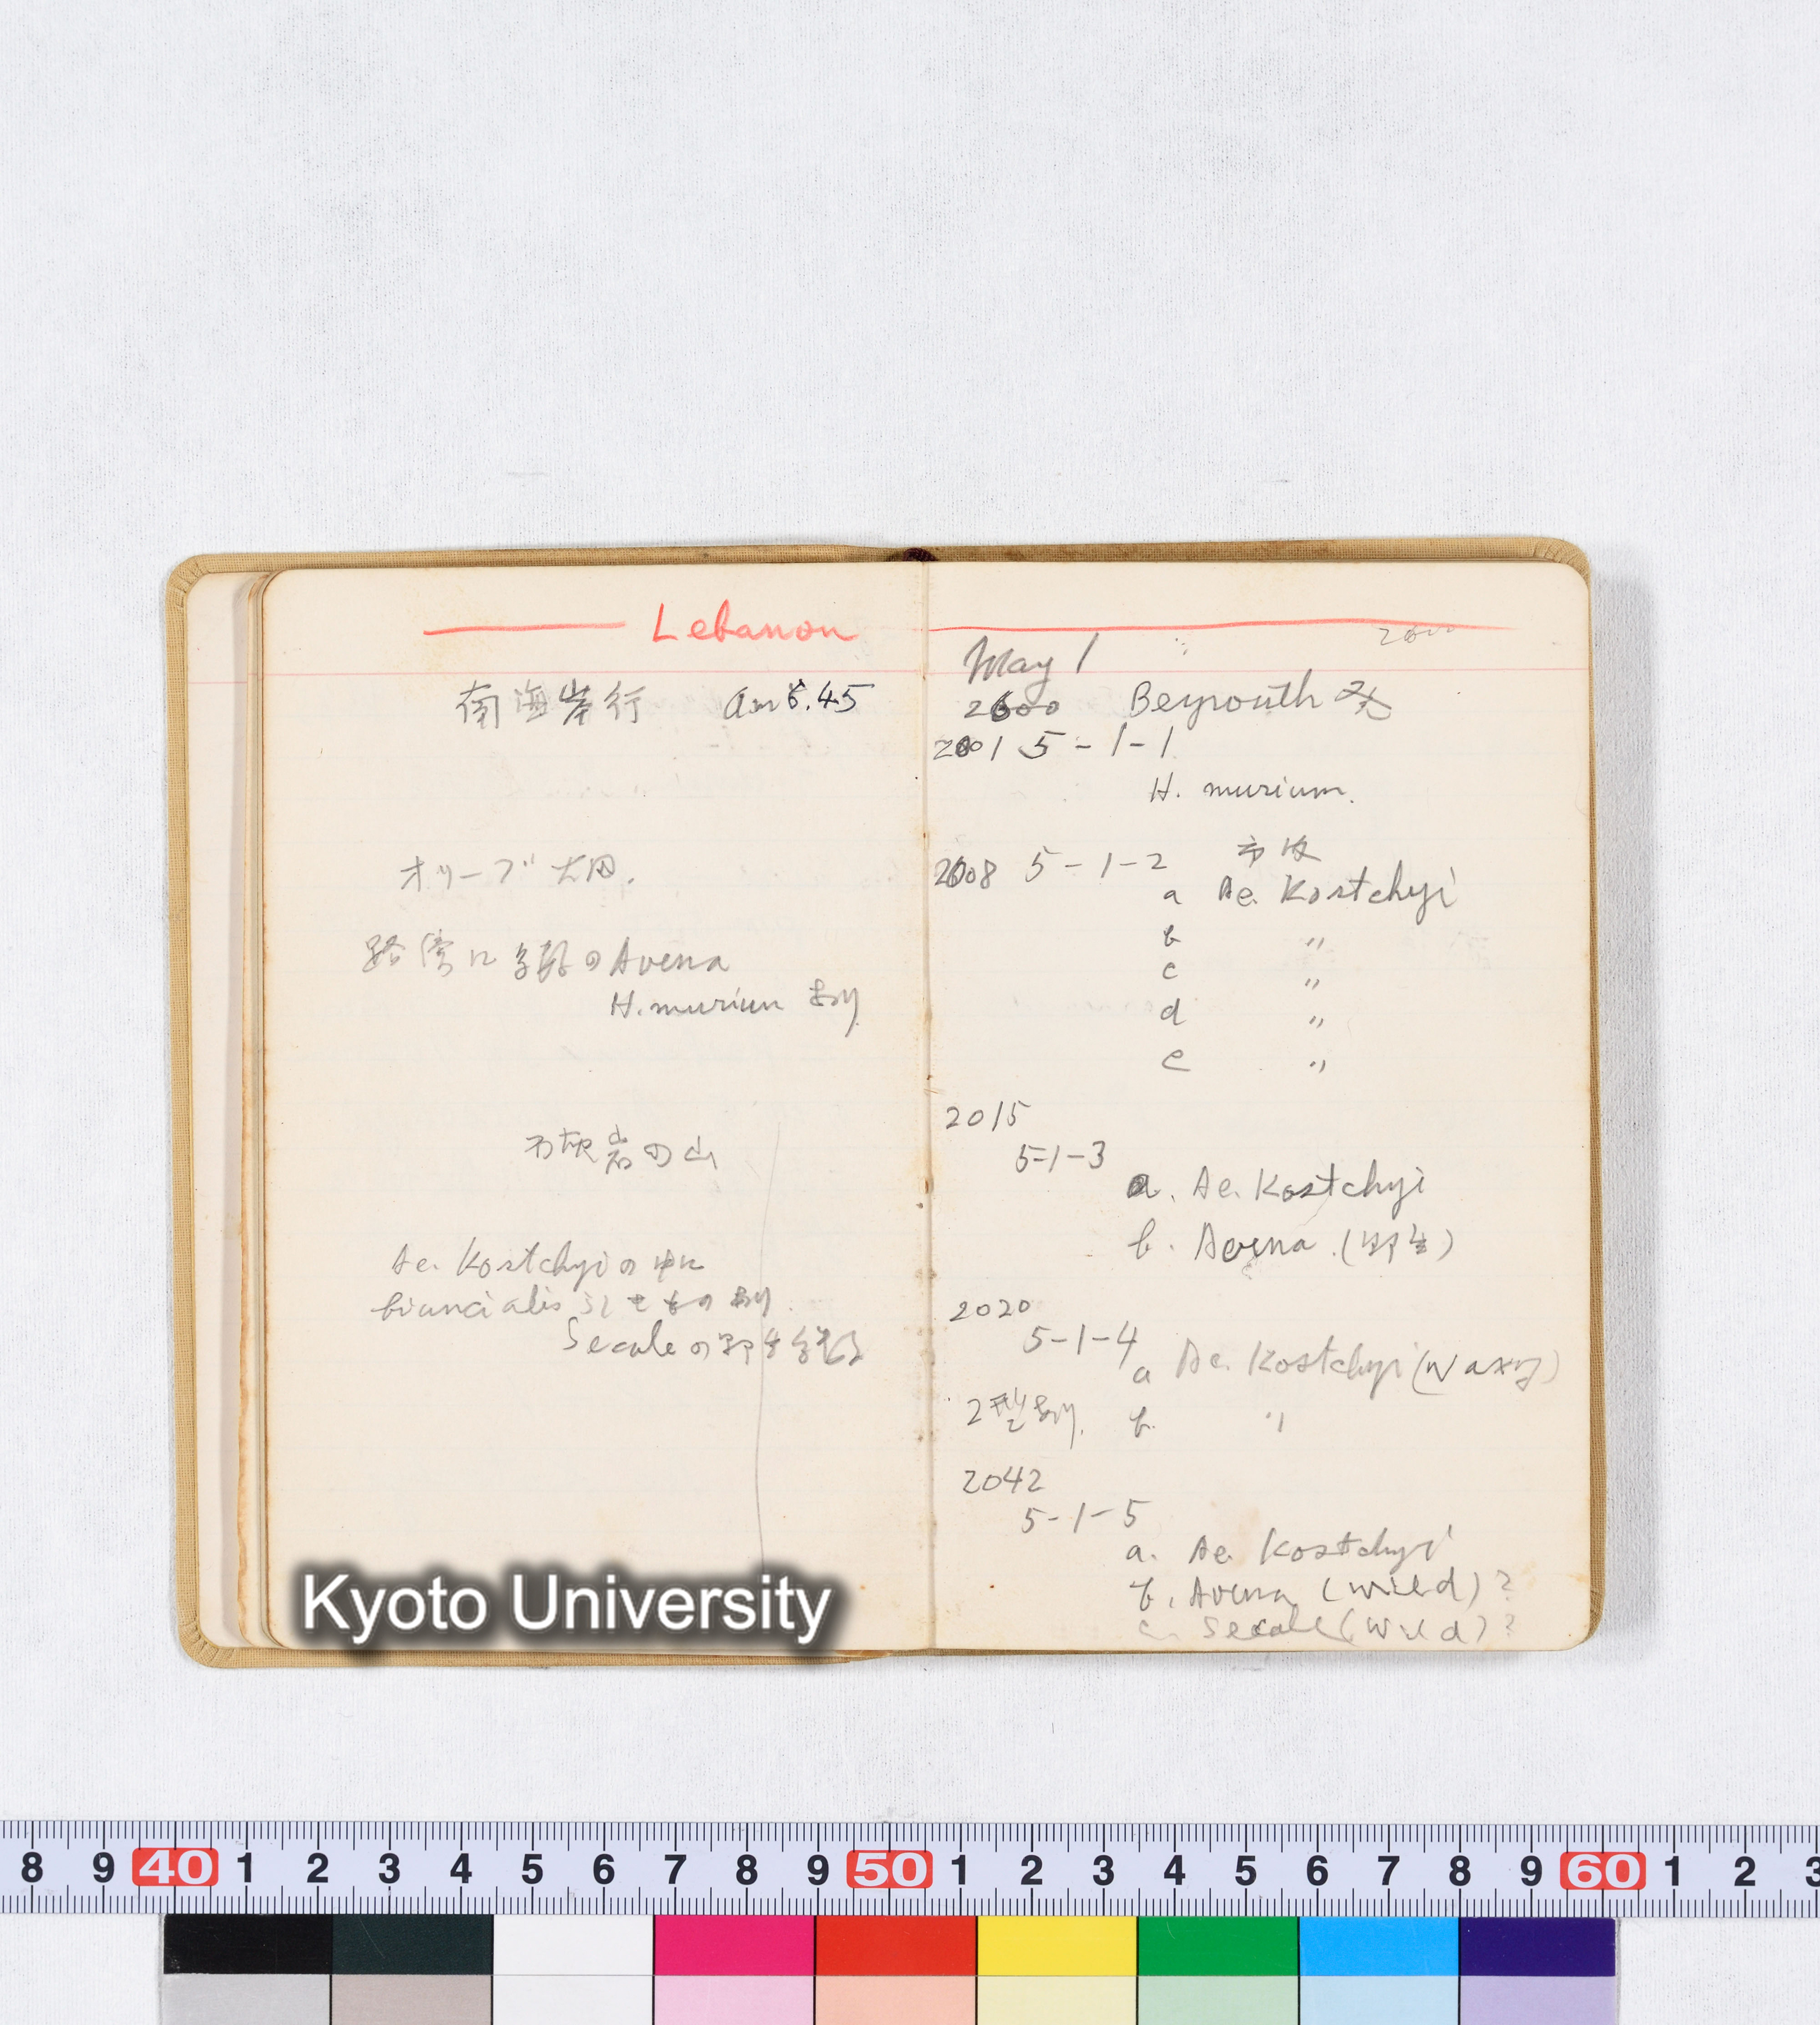 Lebanon
南海岸行 am 6.45
オリーブ大田.
路傍に多数のAvena
H. murium あり
石灰岩の山
Ae. Kostchyiの中に
biuncialis きものあり.
Secaleの野生多数
May 1
2600 Beyrouth 発
2001 5-1-1
H. murium.
2008 5-1-2
a Ae. Kostchyi
b 〃
c 〃
d 〃
e 〃
2015
5-1-3
a. Ae. Kostchyi
b. Avena (野生)
2020
5-1-4
a Ae. Kostchyi (waxy)
2型あり. b. 〃
2042
5-1-5
a. Ae. Kostchyi
b. Avena (wild) ?
c. Secale (wild) ?
Kyoto University
8 9 40 1 2 3 4 5 6 7 8 9 50 1 2 3 4 5 6 7 8 9 60 1 2 3